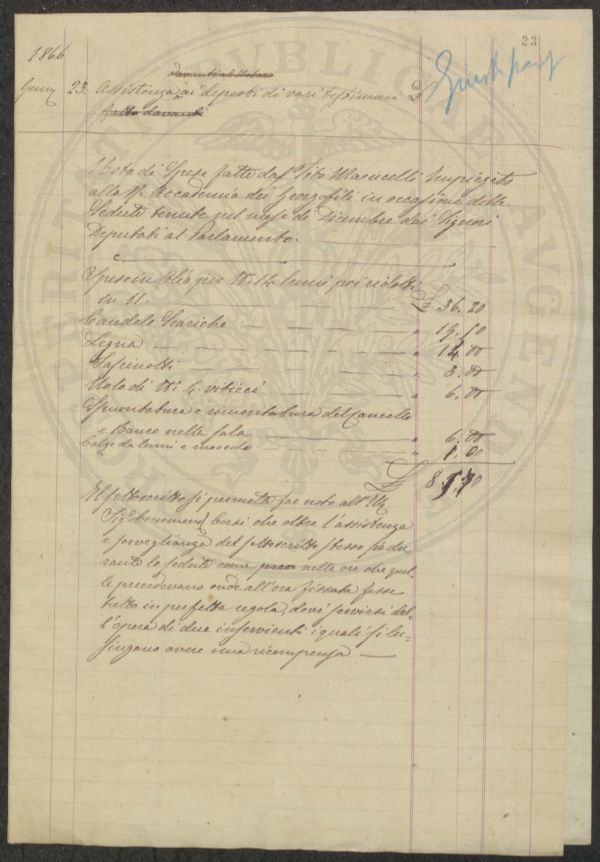 23
1866
Genn 23. Assistenza ai deposti di vari testimoni £
Nota di Spese fatte dal Tito Masucelli Impiegato
alla R. Accademia dei Georgofili in occasione delle
Sedute tenute nel mese di Dicembre dai Signori
Deputati al Parlamento.
Spese in Olio per N. 14 lumi poi ridotti
in 11. £ 36.20
Candele Steariche " 19.50
Legna " 14.00
Fascinotti " 3.00
Nolo di N. 4 viticci " 6.00
Smontatura e rimontatura del Cancello
e Banco nella sala " 6.00
Calze da lumi e moccolo " 1.00
£
Il sottoscritto si permette far noto all'Ill
Sig. Commend Corsi che oltre l'assistenza
e sorveglianza del sottoscritto stesso sì du-
rante le sedute come nelle ore che quel-
le precedevano onde all'ora fissata fosse
tutto in perfetta regola, dové servirsi del-
l'opera di due inservienti i quali si lu-
singono avere una ricompensa